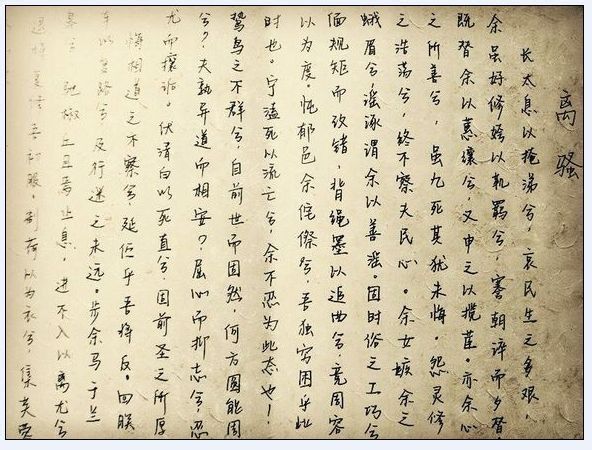 离骚
长太息以掩涕兮，哀民生之多艰，
余虽好修姱以鞿羁兮，謇朝谇而夕替。
既替余以蕙纕兮，又申之以揽茝。亦余心
之所善兮，虽九死其犹未悔。怨灵修
之浩荡兮，终不察夫民心。余女嫉余之
蛾眉兮，谣诼谓余以善淫。固时俗之工巧兮
偭规矩而改错，背绳墨以追曲兮，竞周容
以为度。忳郁邑余侘傺兮，吾独穷困乎此
时也。宁溘死以流亡兮，余不忍为此态也！
鸷鸟之不群兮，自前世而固然，何方圜能周
兮？夫孰异道而相安？屈心而抑志兮，忍
尤而攘诟。伏清白以死直兮，固前圣之所厚
悔相道之不察兮，延伫乎吾将反。回朕
车以复路兮，及行迷之未远。步余马于兰
皋兮，驰椒丘且焉止息，进不入以离尤兮
退将复修吾初服。制荷以为衣兮，集芙